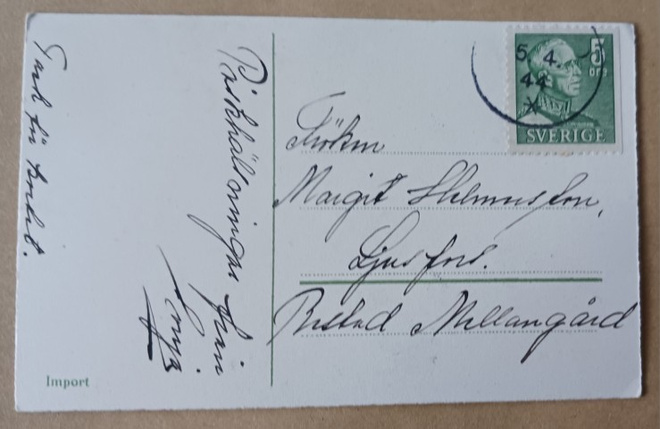 Tack för kortet.
Påskhälsningar från
Sonja
5. 4.
44
5
ÖRE
SVERIGE
Fröken
Margit Helmersson,
Ljusfors.
Bestad Mellangård
Import